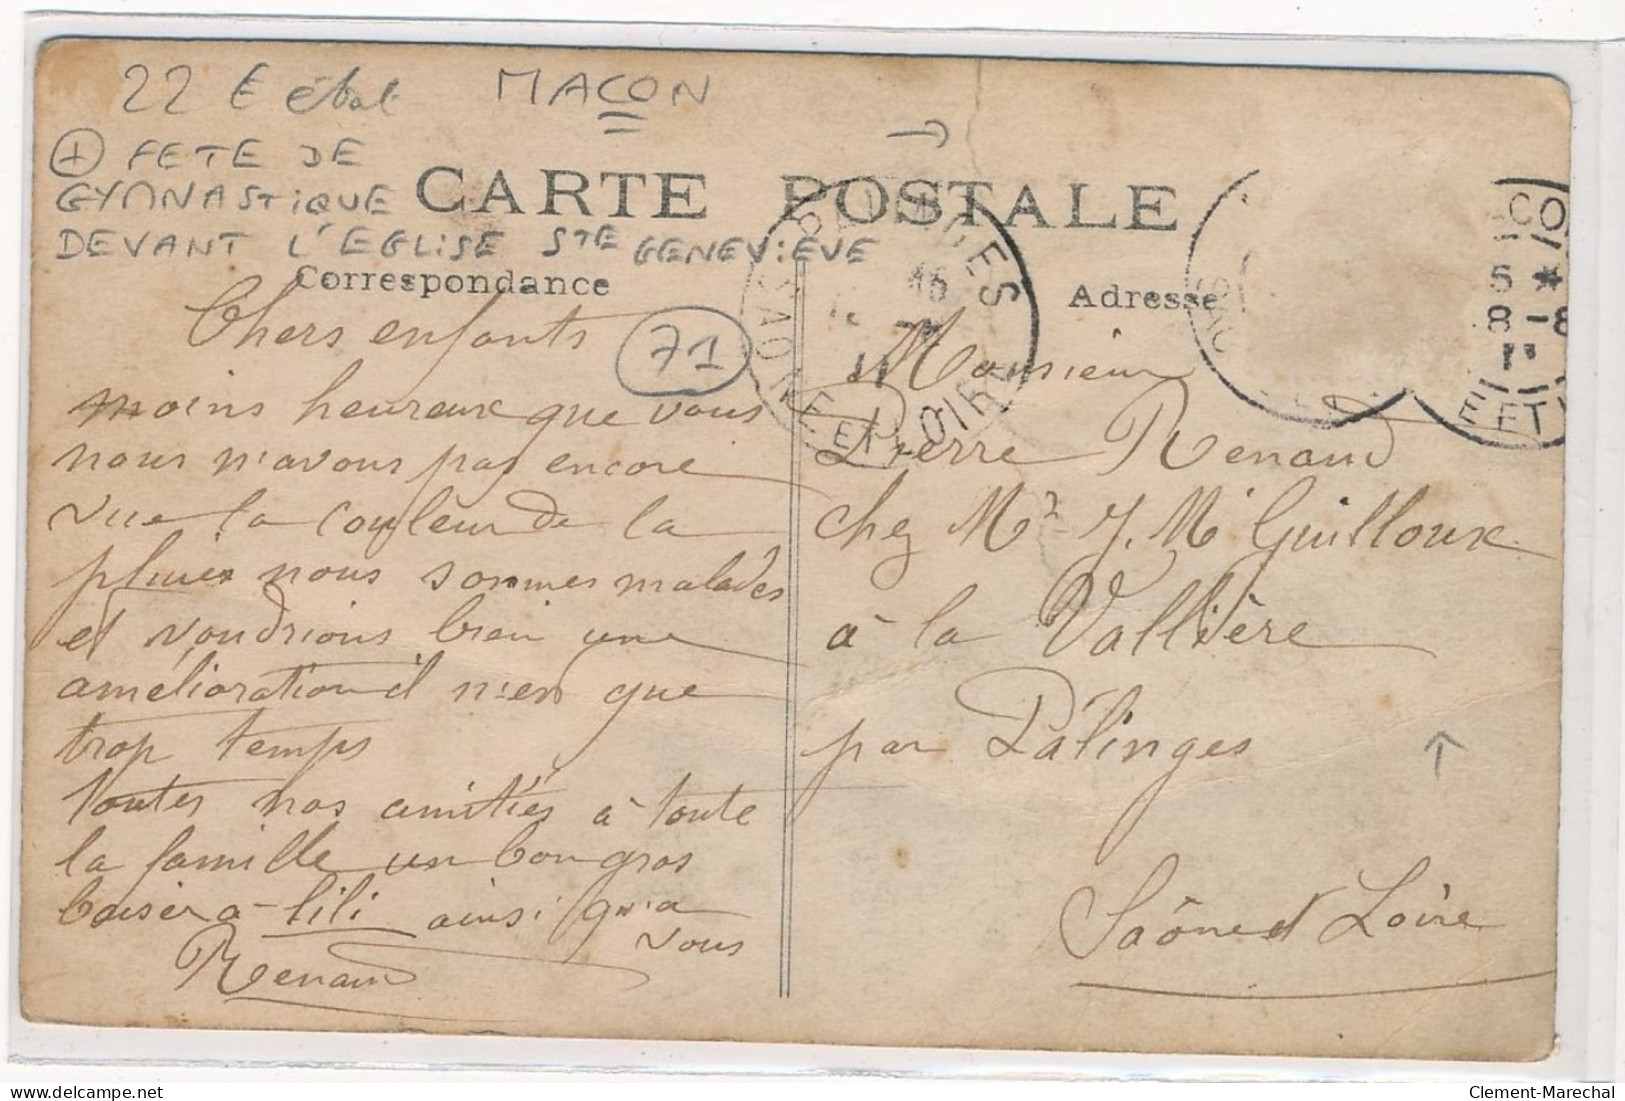 22 E état MACON
+ FETE DE
GYMNASTIQUE
DEVANT L'EGLISE STE GENEVIEVE
CARTE POSTALE
Correspondance
Adresse
71
Chers enfants
moins heureux que vous
nous n'avons pas encore
vue la couleur de la
pluie nous sommes malades
et voudrions bien une
amélioration il n'en que
trop temps
toutes nos amitiés à toute
la famille un bon gros
baiser a lili ainsi qu'a
vous
Renaud
Monsieur
Pierre Renaud
chez Mr J. M Guilloux
à la Vallière
par Palinges
Saône et Loire
PALINGES
SAONE ET LOIRE
15
11
CO
5 *
8 - 8
11
E ET L
Clement-Marechal